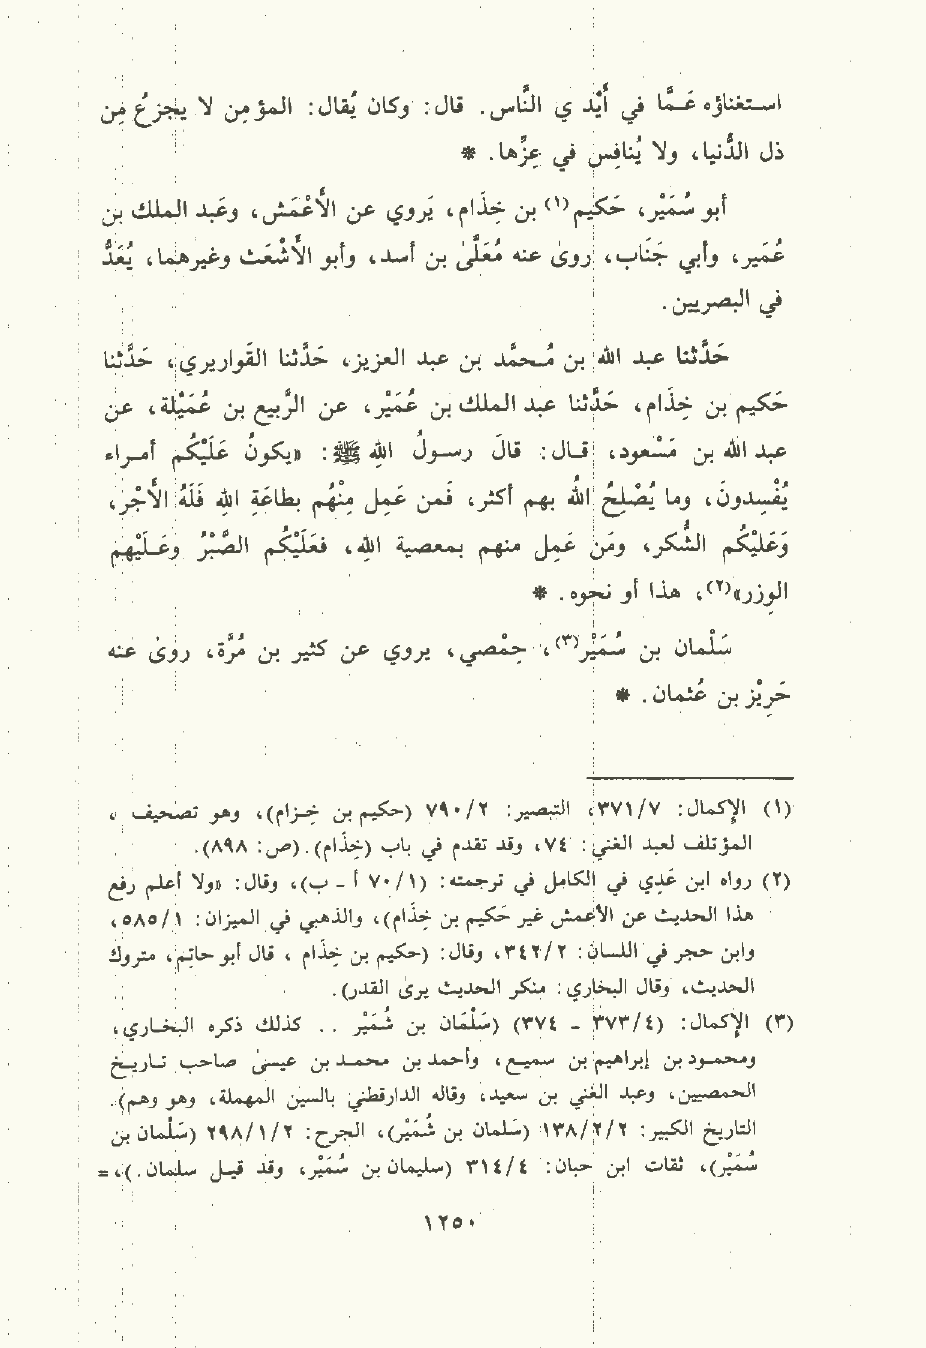 استغناؤه عَمَّا في أَيْدِ ي النَّاس. قال: وكان يُقال: المؤمِن لا يجزعُ مِن
ذل الدُّنيا، ولا يُنافِس في عِزِّها. *
أبو سُمَيْر، حَكيم(١) بن خِذَام، يَروي عن الأَعْمَش، وعَبد الملك بن
عُمَير، وأبي جَنَاب، روىٰ عنه مُعَلَّىٰ بن أسد، وأبو الأَشْعَث وغيرهما، يُعَدُّ
في البصريين.
حَدَّثنا عبد الله بن مُحمَّد بن عبد العزيز، حَدَّثنا القَواريري، حَدَّثنا
حَكيم بن خِذَام، حَدَّثنا عبد الملك بن عُمَيْر، عن الرَّبيع بن عُمَيْلة، عن
عبد الله بن مَسْعود، قال: قالَ رسولُ اللهِ ﷺ: «يكونُ عَلَيْكُم أمراء
يُفْسِدونَ، وما يُصْلِحُ اللهُ بهم أكثر، فَمن عَمِل مِنْهُم بطاعَةِ اللهِ فَلَهُ الأَجْر،
وَعَلَيْكُم الشُّكر، ومَن عَمِل منهم بمعصية اللهِ، فعَلَيْكُم الصَّبْرُ وعَلَيْهِم
الوِزر»(٢)، هذا أو نحوه. *
سَلْمان بن سُمَيْر(٣)، حِمْصي، يروي عن كثير بن مُرَّة، روىٰ عنه
حَرِيْز بن عُثمان. *
(١) الإكمال: ٣٧١/٧، التبصير: ٧٩٠/٢ (حكيم بن خِزام)، وهو تصحيف ،
المؤتلف لعبد الغني: ٧٤، وقد تقدم في باب (خِذام). (ص: ٨٩٨).
(٢) رواه ابن عَدِي في الكامل في ترجمته: (٧٠/١ أ - ب)، وقال: «ولا أعلم رفع
هذا الحديث عن الأعمش غير حَكيم بن خِذام)، والذهبي في الميزان: ٥٨٥/١،
وابن حجر في اللسان: ٣٤٢/٢، وقال: (حكيم بن خِذام ، قال أبو حاتِم، متروك
الحديث، وقال البخاري: منكر الحديث يرىٰ القدر).
(٣) الإكمال: (٣٧٣/٤ - ٣٧٤) (سَلْمَان بن شُمَيْر .. كذلك ذكره البخاري،
ومحمود بن إبراهيم بن سميع، وأحمد بن محمد بن عيسىٰ صاحب تاريخ
الحمصيين، وعبد الغني بن سعيد، وقاله الدارقطني بالسين المهملة، وهو وهم).
التاريخ الكبير: ١٣٨/٢/٢ (سَلمان بن شُمَيْر)، الجرح: ٢٩٨/١/٢ (سَلْمان بن
سُمَيْر)، ثقات ابن حبان: ٣١٤/٤ (سليمان بن سُمَيْر، وقد قيل سلمان.)،=
١٢٥٠